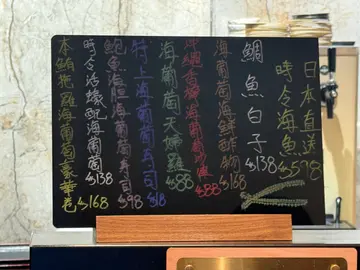 日本直送
時令海魚 $598
鯛魚白子 $138
海葡萄海鮮酢物 $168
海葡萄沙律 $88
海葡萄天婦羅 $88
特上海葡萄壽司 $18
鮑魚海膽海葡萄壽司 $98
時令活蠔配海葡萄 $68
本鮪拖羅海葡萄豪華卷 $168